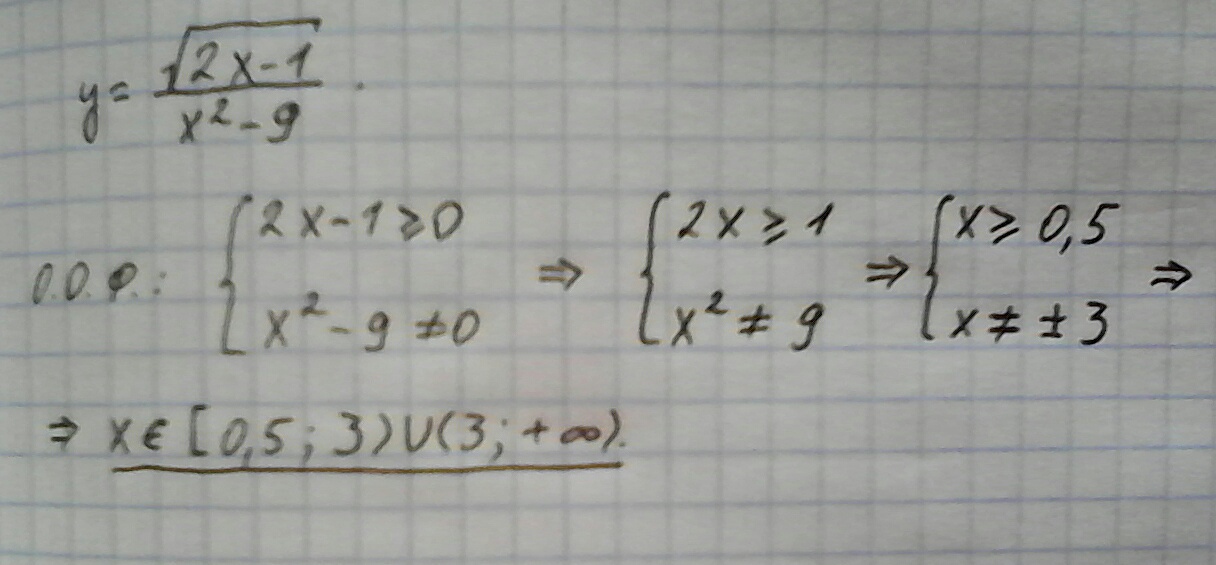 y = √(2x-1) / (x²-9) .
О.О.Ф.: { 2x-1≥0 ; x²-9≠0 ⇒ { 2x≥1 ; x²≠9 ⇒ { x≥0,5 ; x≠±3 ⇒
⇒ x∈[0,5; 3)∪(3; +∞).